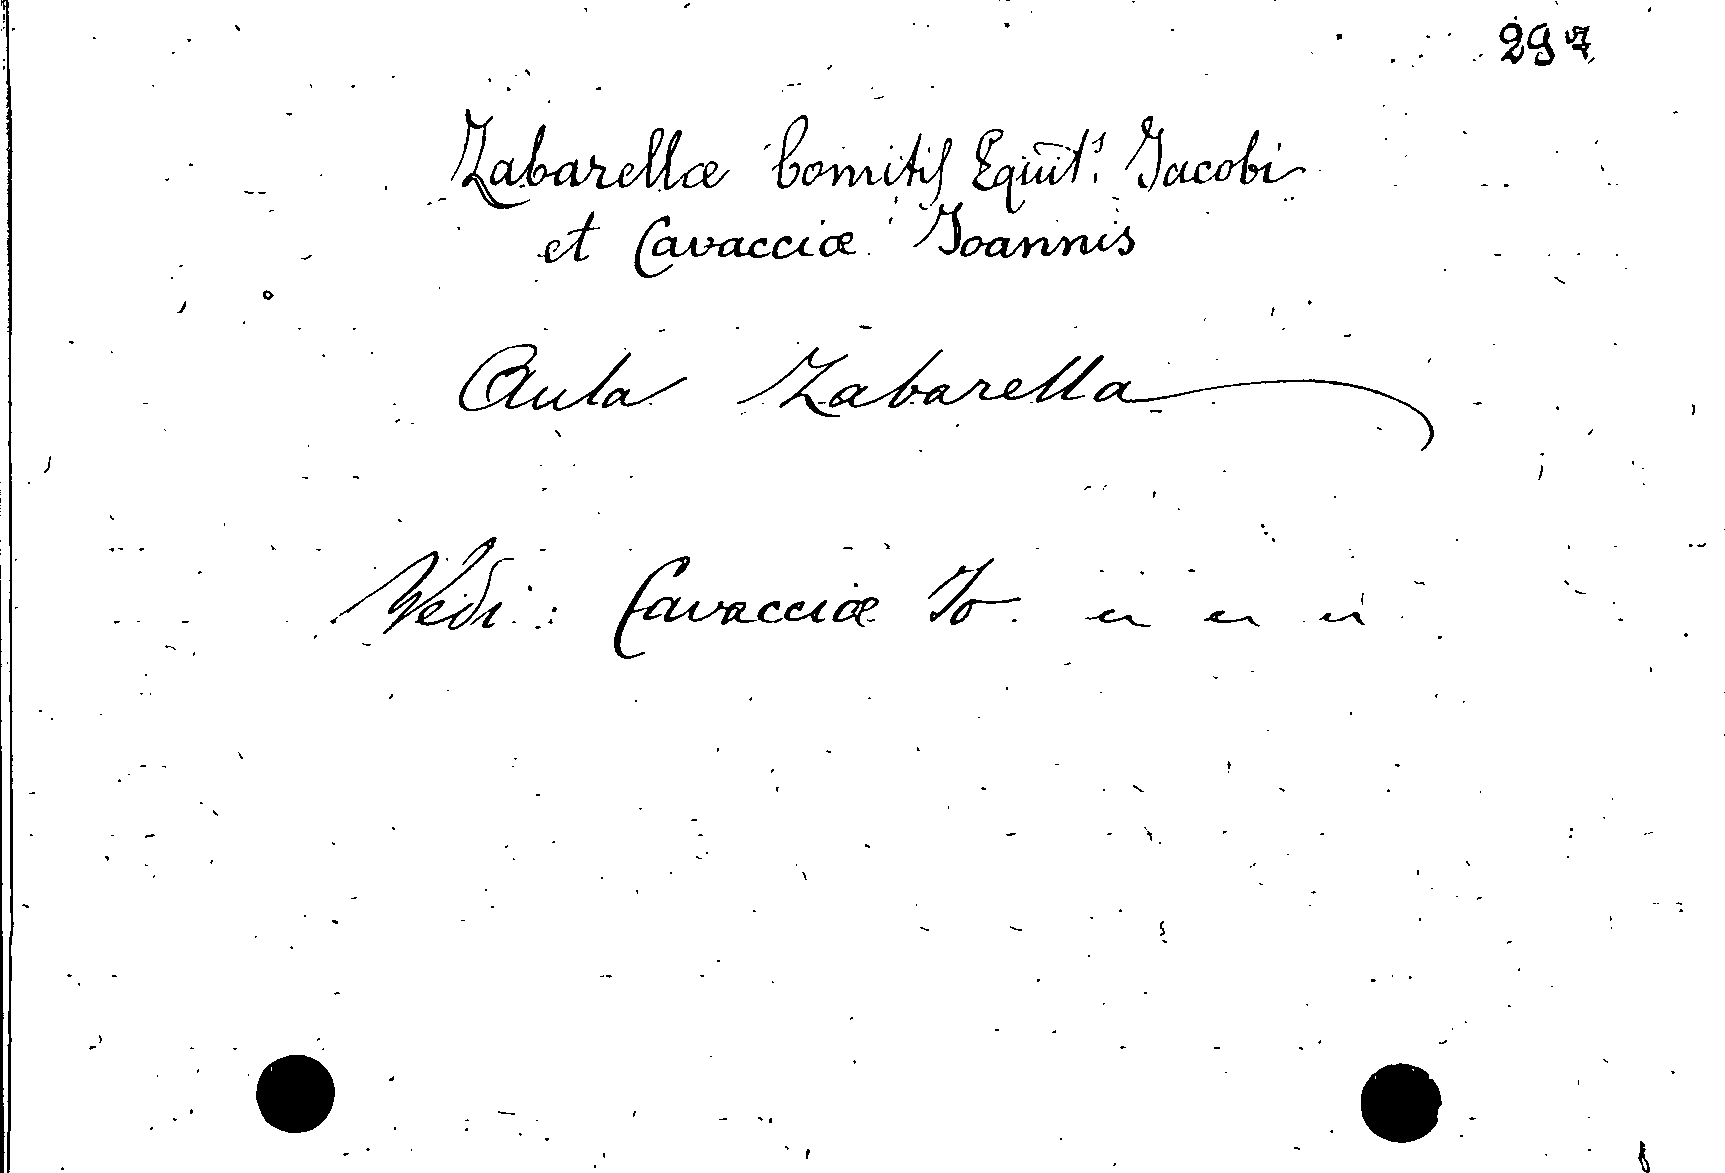 297
Zabarellæ Comitis Equit.s Jacobi
et Cavacciæ Joannis
Aula Zabarella
Vedi: Cavacciæ Jo.